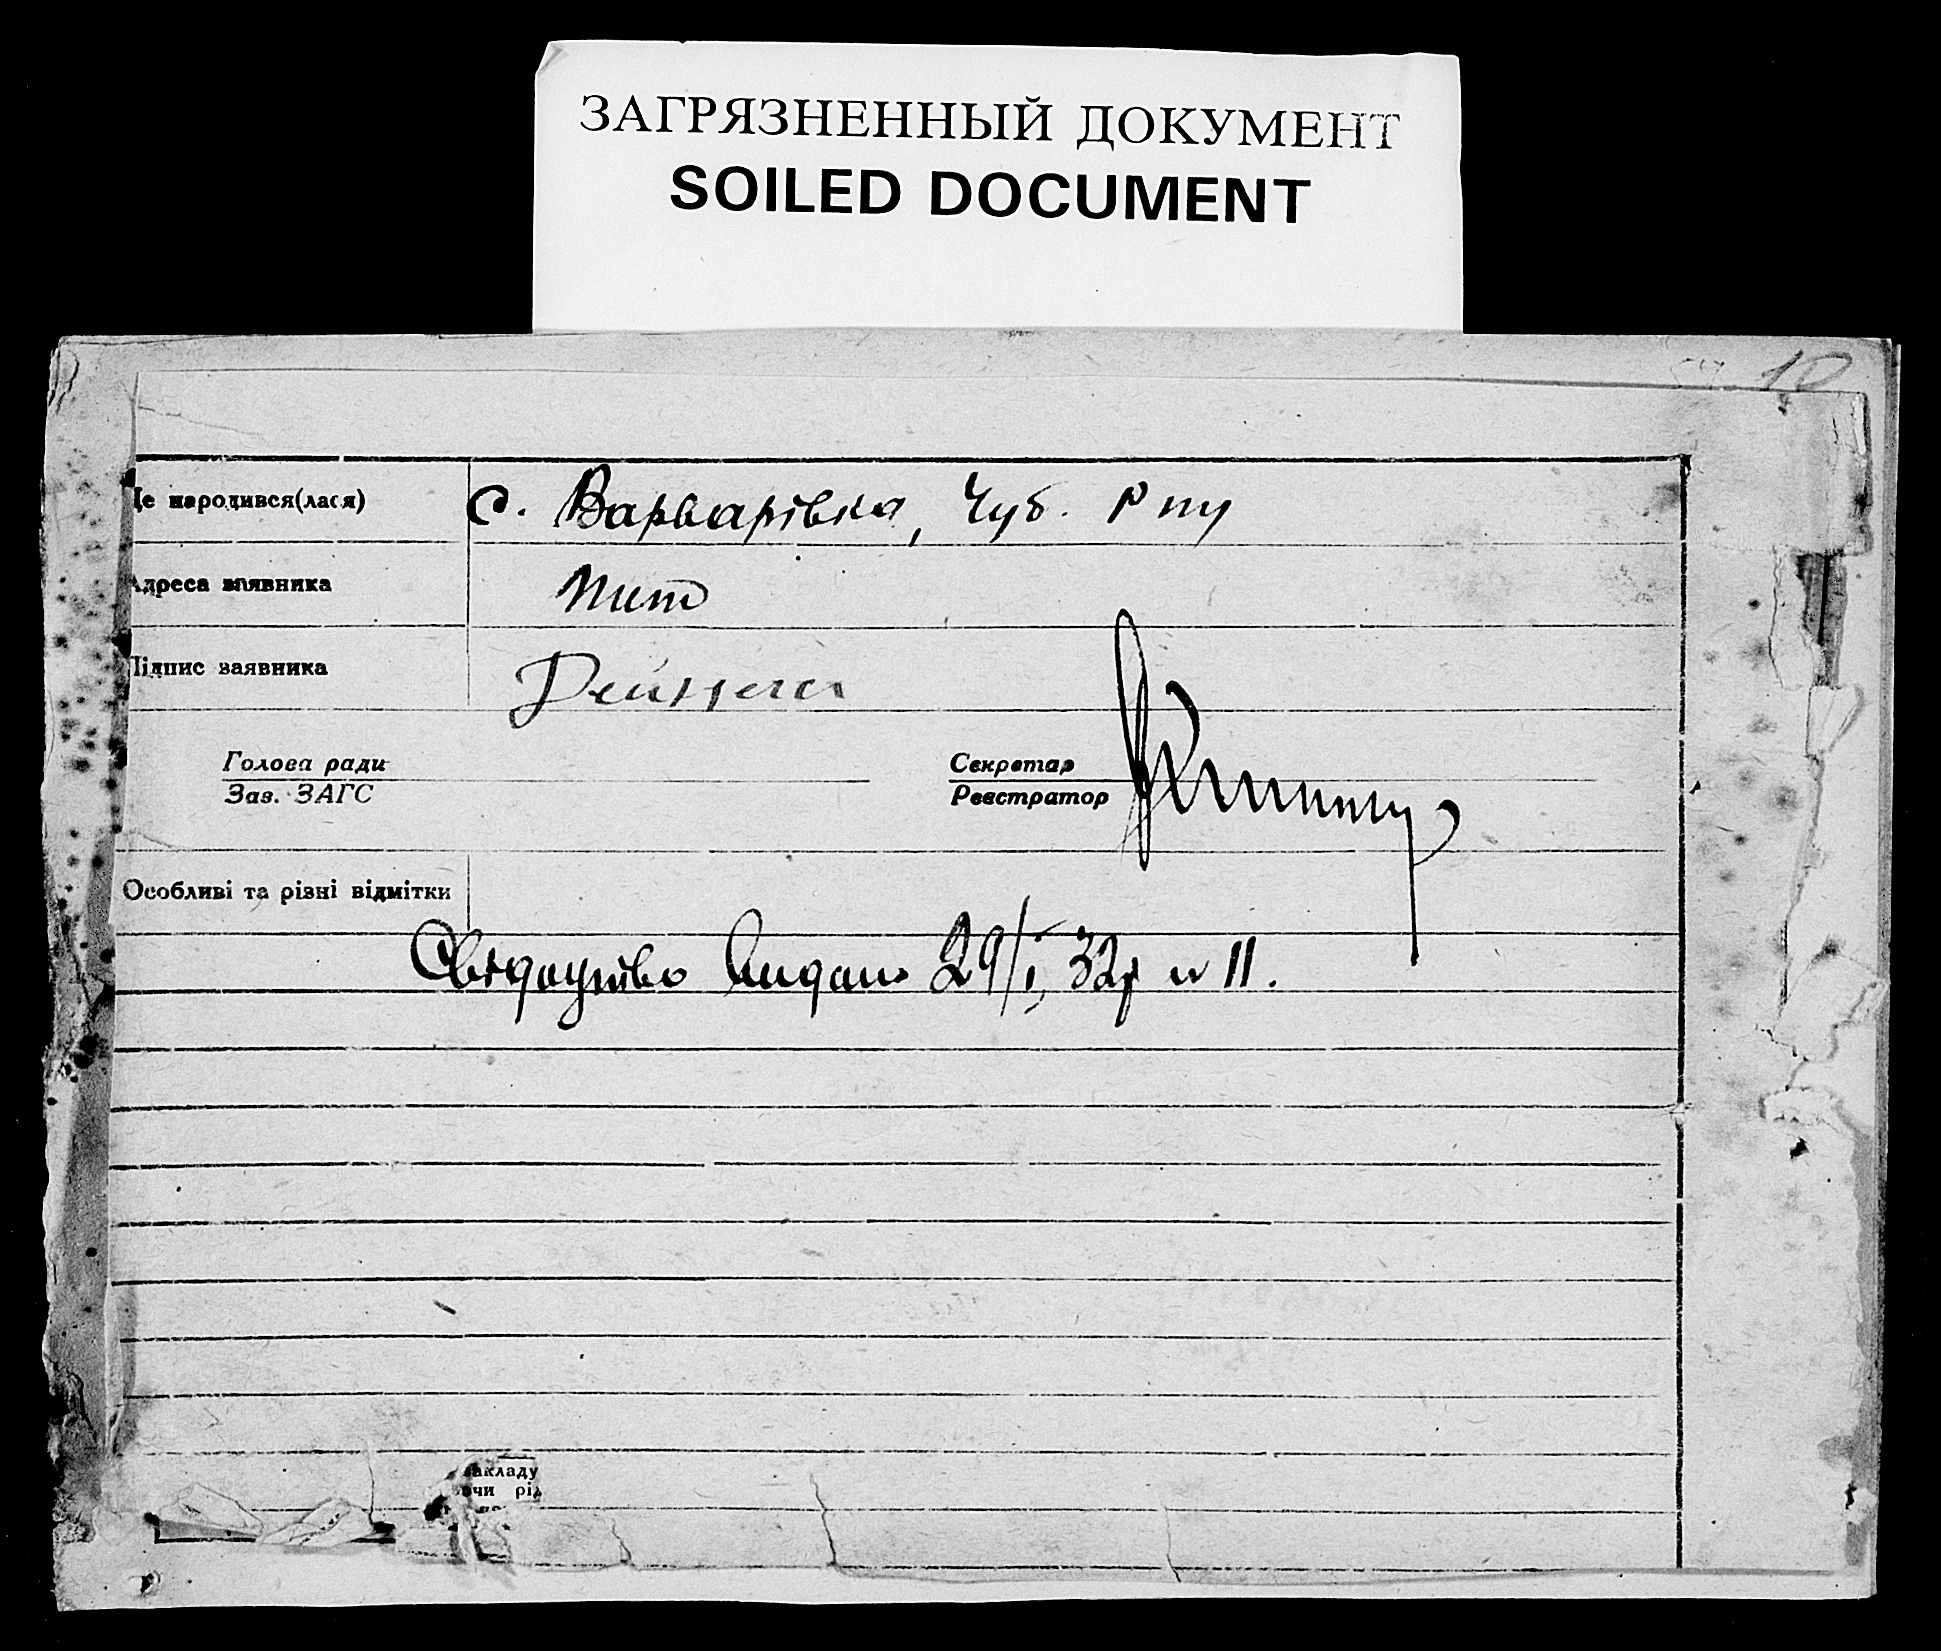 ЗАГРЯЗНЕННЫЙ ДОКУМЕНТ
SOILED DOCUMENT
10
Де народився(лася) с. Варварівка, Чуб. Рну
Адреса заявника
Підпис заявника Дейнега
Голова ради Секретар
Зав. ЗАГС Реєстратор
Особливі та різні відмітки
Свідоцтво видано 29/I, 32р н 11.
закладу
рід